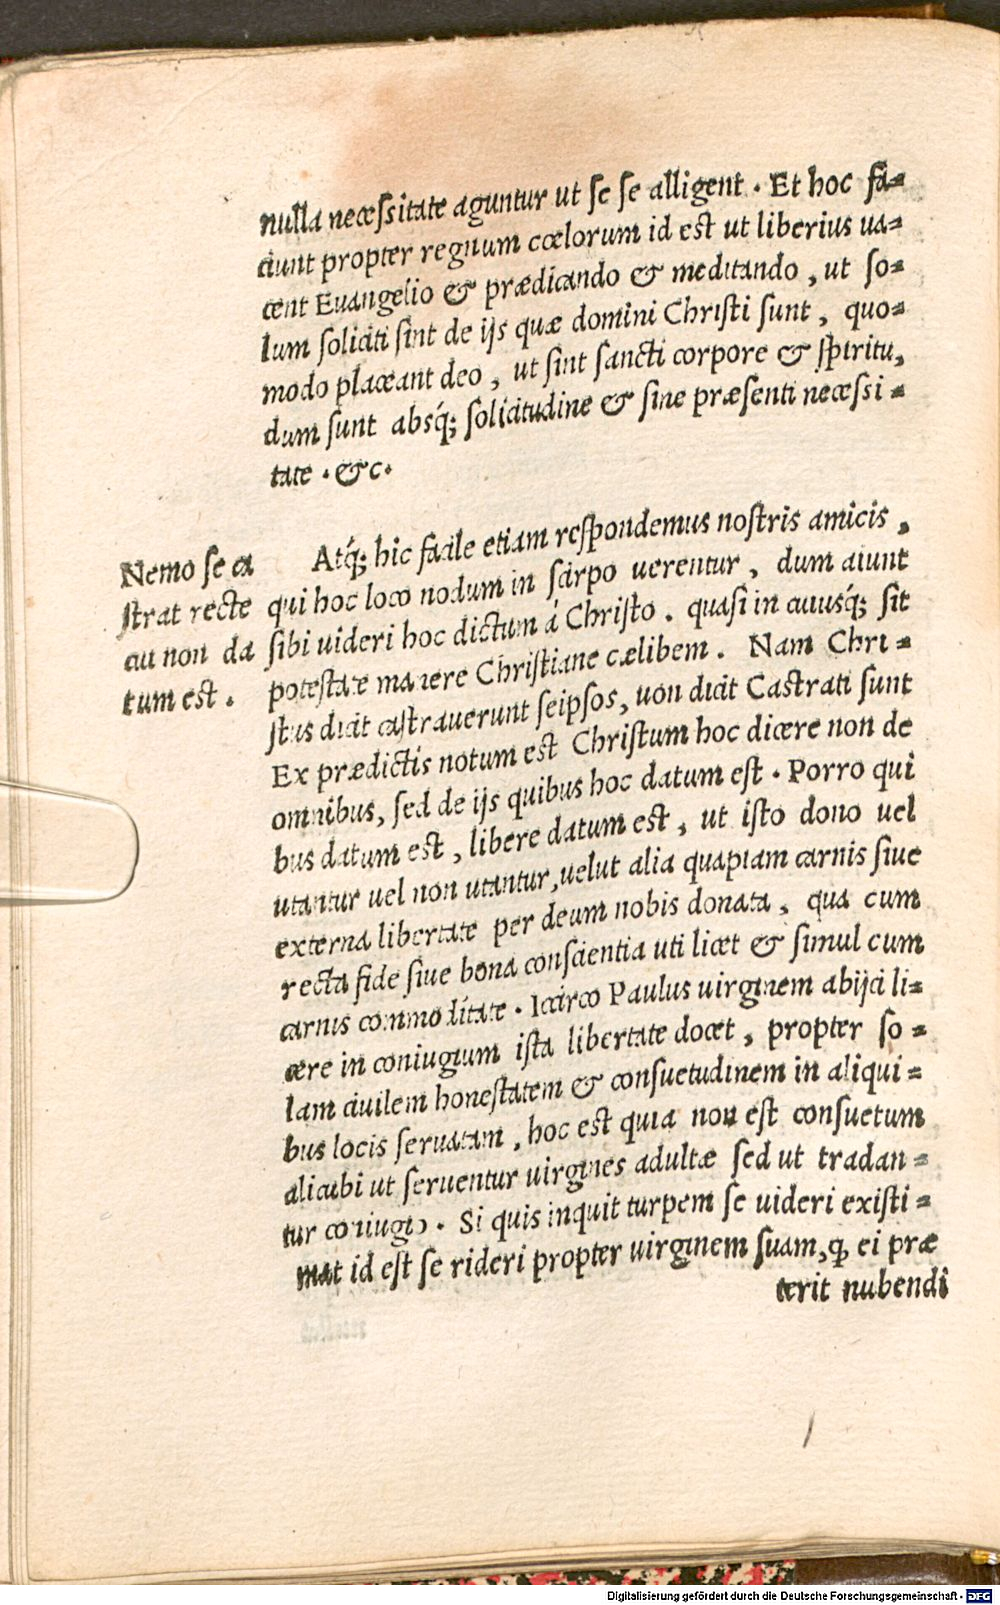 nulla necessitate aguntur ut se se alligent . Et hoc fa=
ciunt propter regnum cœlorum id est ut liberius ua=
cent Euangelio & prædicando & meditando , ut so=
lum soliciti sint de ijs quæ domini Christi sunt , quo=
modo placeant deo , ut sint sancti corpore & spiritu,
dum sunt absq́; solicitudine & sine præsenti necessi=
tate . &c.
Nemo se ca
strat recte
cui non da
tum est .
Atq́; hic facile etiam respondemus nostris amicis ,
qui hoc loco nodum in scirpo uerentur , dum aiunt
sibi uideri hoc dictum á Christo . quasi in cuiusq́; sit
potestate manere Christiane cælibem . Nam Chri=
stus dicit castrauerunt seipsos, uon dicit Castrati sunt
Ex prædictis notum est Christum hoc dicere non de
omnibus, sed de ijs quibus hoc datum est . Porro qui
bus datum est , libere datum est , ut isto dono uel
utantur uel non utantur,uelut alia quapiam carnis siue
externa libertate per deum nobis donata , qua cum
recta fide siue bona conscientia uti licet & simul cum
carnis commoditate . Iccirco Paulus uirginem abijci li=
cere in coniugium ista libertate docet , propter so=
lam ciuilem honestatem & consuetudinem in aliqui=
bus locis seruatam , hoc est quia non est consuetum
alicubi ut seruentur uirgines adultæ sed ut tradan=
tur coniugio . Si quis inquit turpem se uideri existi=
mat id est se rideri propter uirginem suam,ꝙ ei præ
terit nubendi
Digitalisierung gefördert durch die Deutsche Forschungsgemeinschaft - DFG